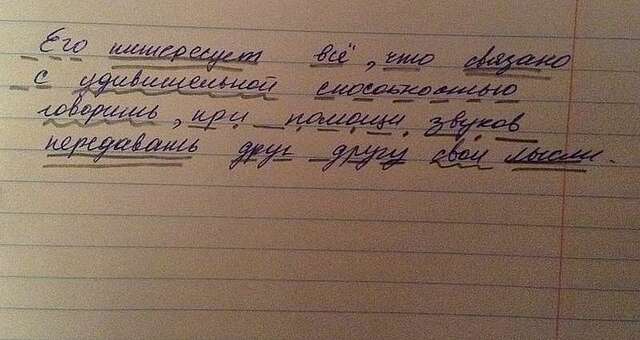 Его интересует всё, что связано
с удивительной способностью
говорить, при помощи звуков
передавать друг другу свои мысли.